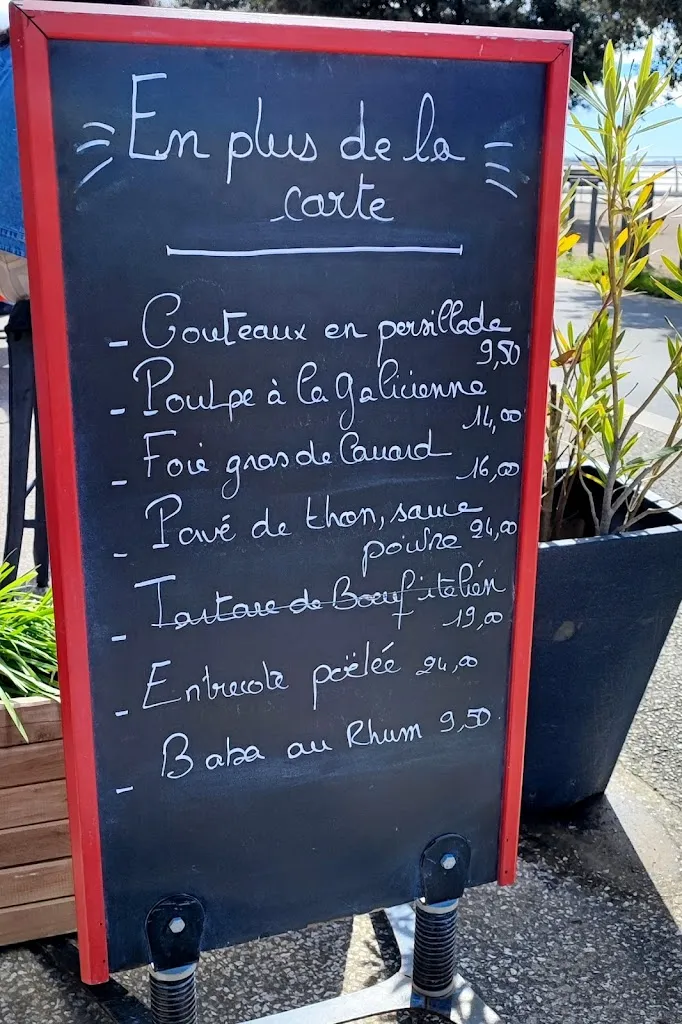 En plus de la
carte
- Couteaux en persillade
9,50
- Poulpe à la Galicienne
14,00
- Foie gras de Canard
16,00
- Pavé de thon, sauce
poivre 24,00
- Tartare de Boeuf italien
19,00
- Entrecote poëlée 24,00
- Baba au Rhum 9,50